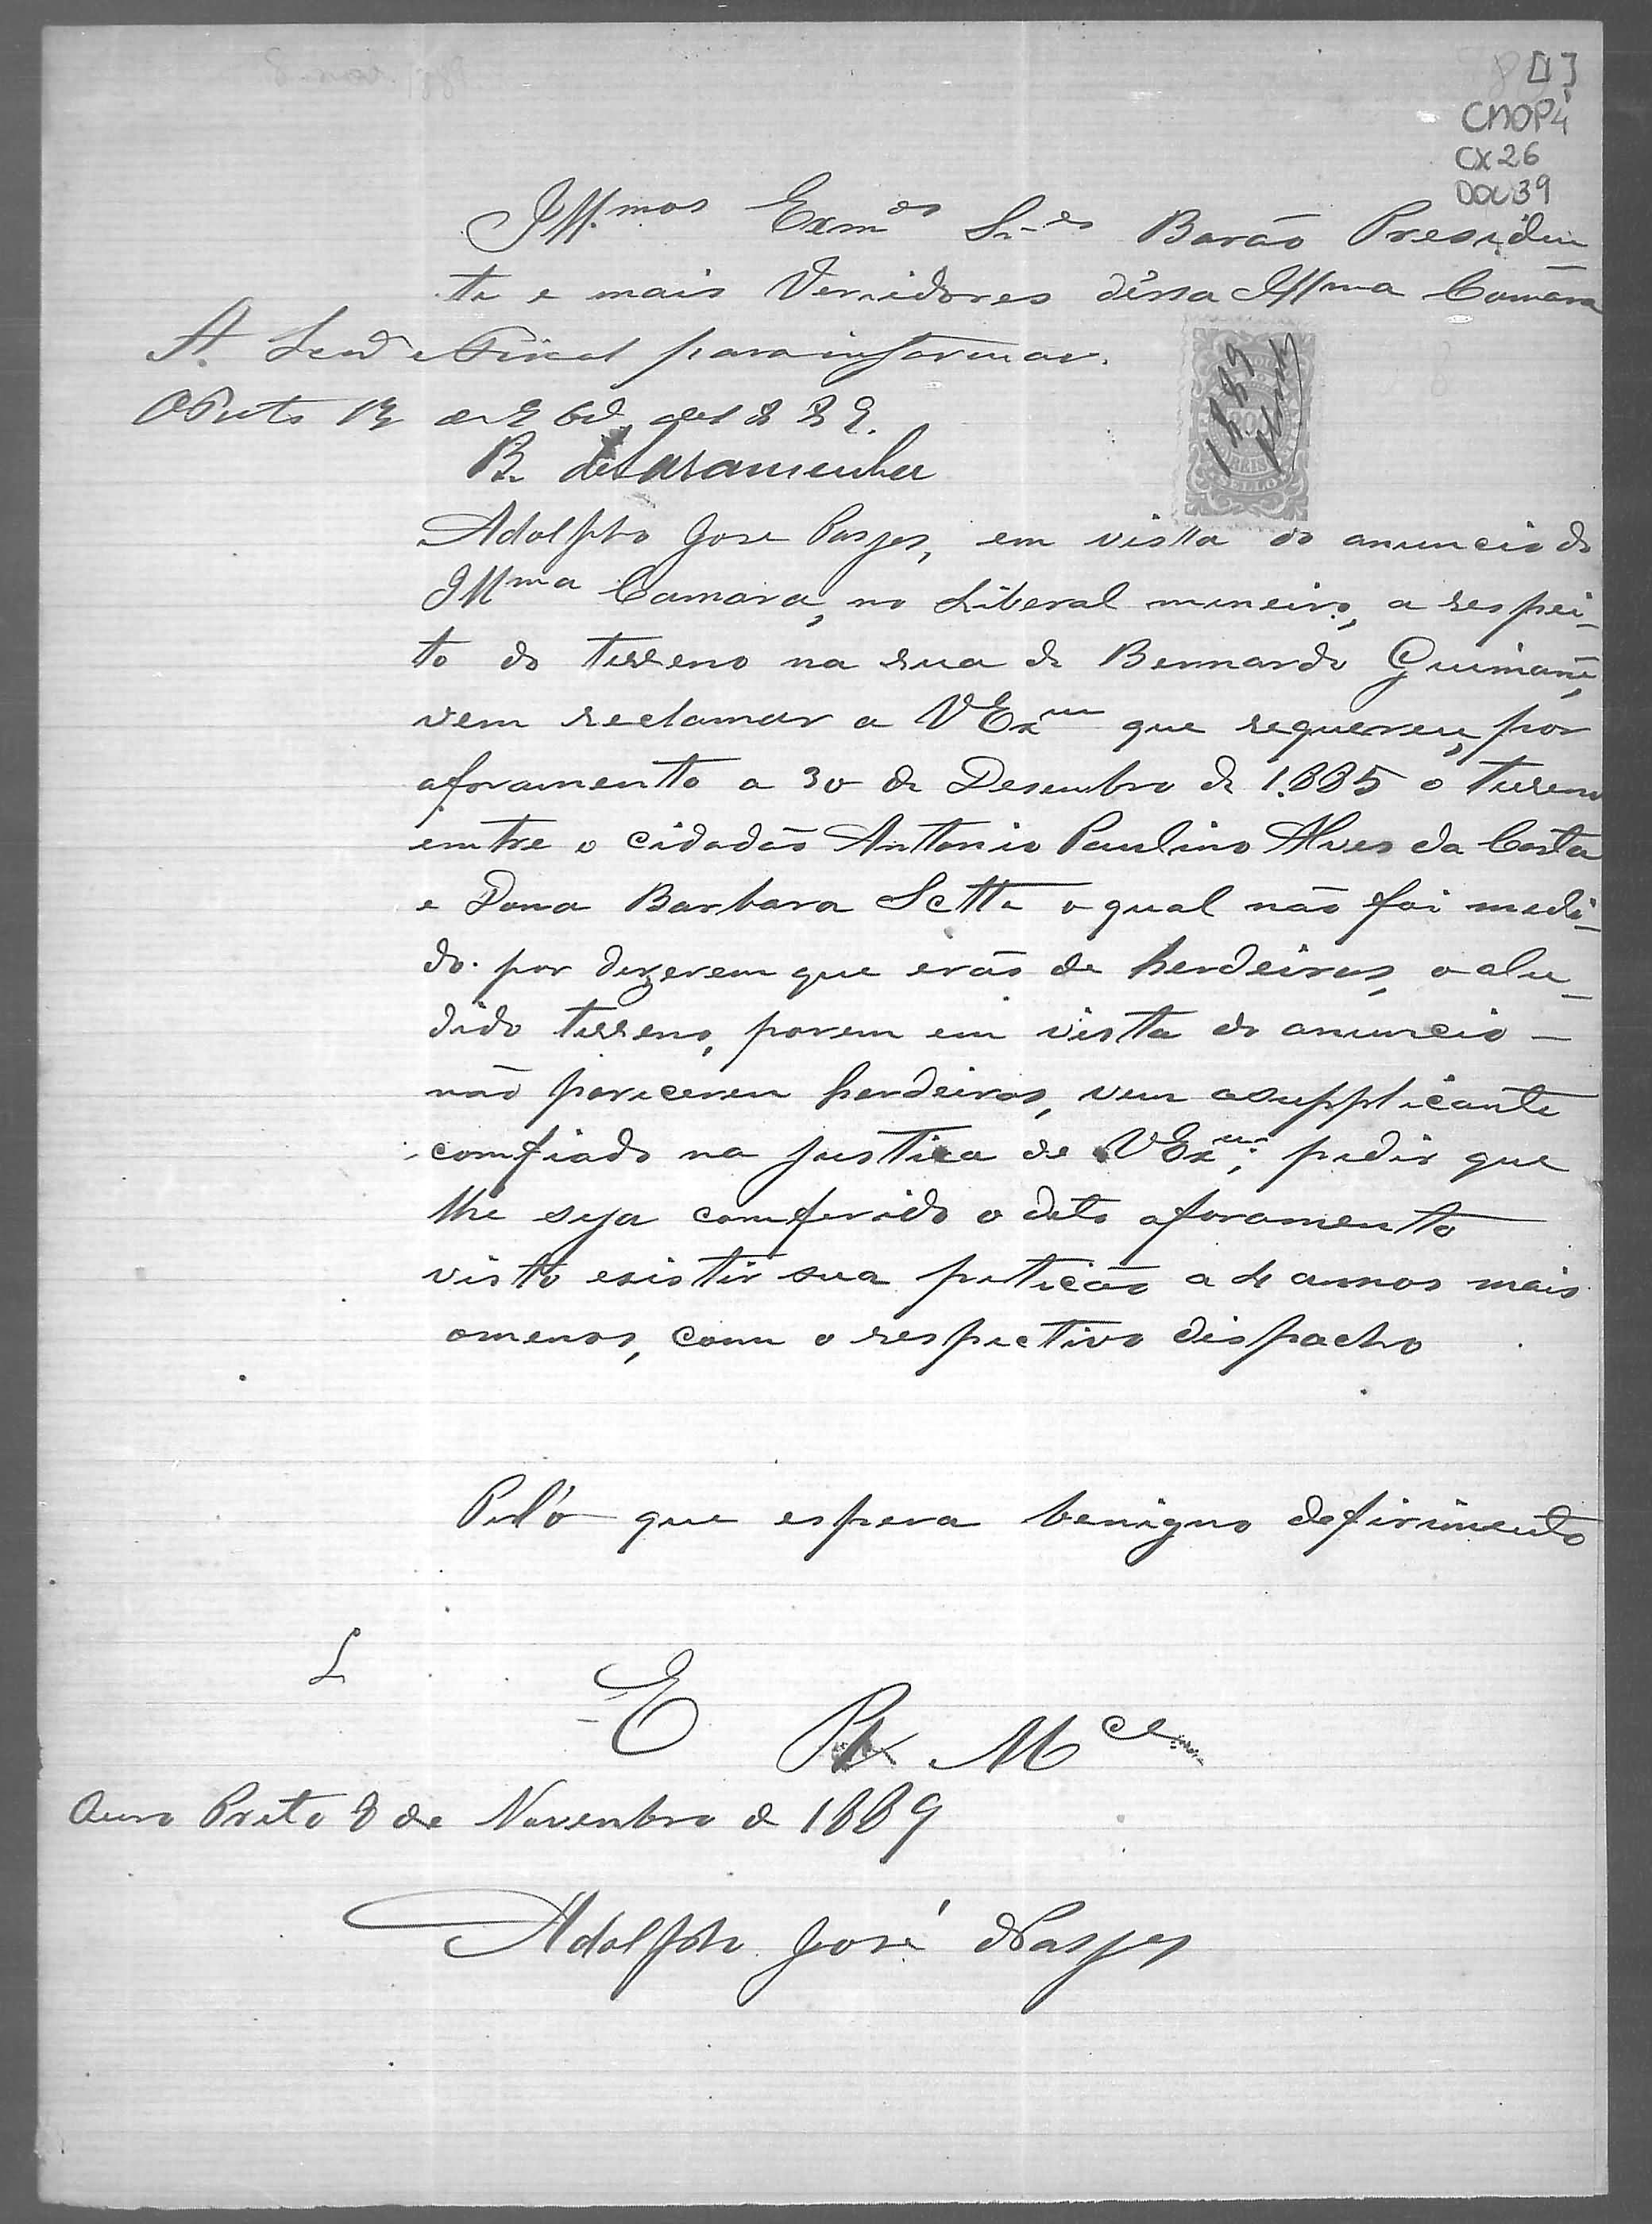 [1]
CMOP4
CX 26
DOC 39
Illmos Exmos Snres Barão Presiden
te e mais Veriadores dessa Illma Camara
Fiscal para informar.
OPreto 12 de 9bro de 1889.
B. de Saramenha
1889
REIS
SELLO
Adolpho Jose Passos, em vista do anuncio da
Illma Camara, no Liberal mineiro, a respei-
to do terreno na rua de Bernardo Guimarães,
vem reclamar a VExcia que requereu, por
aforamento a 30 de Desembro de 1.885 o terreno
emtre o cidadão Antonio Paulino Alves da Costa
e Dona Barbara Sette o qual não foi medi-
do por dizerem que erão de herdeiros, o alu-
dido terreno, porem em vista do anuncio
não parecerem herdeiros, vem o supplicante
comfiado na justiça de VExcia; pedir que
lhe seja comferido o dito aforamento
visto esistir sua petição a 4 annos mais
omenos, com o respectivo dispacho
Pelo que espera benigno defirimento
E R Mce
Ouro Preto 8 de Novembro de 1889
Adolpho José Passos